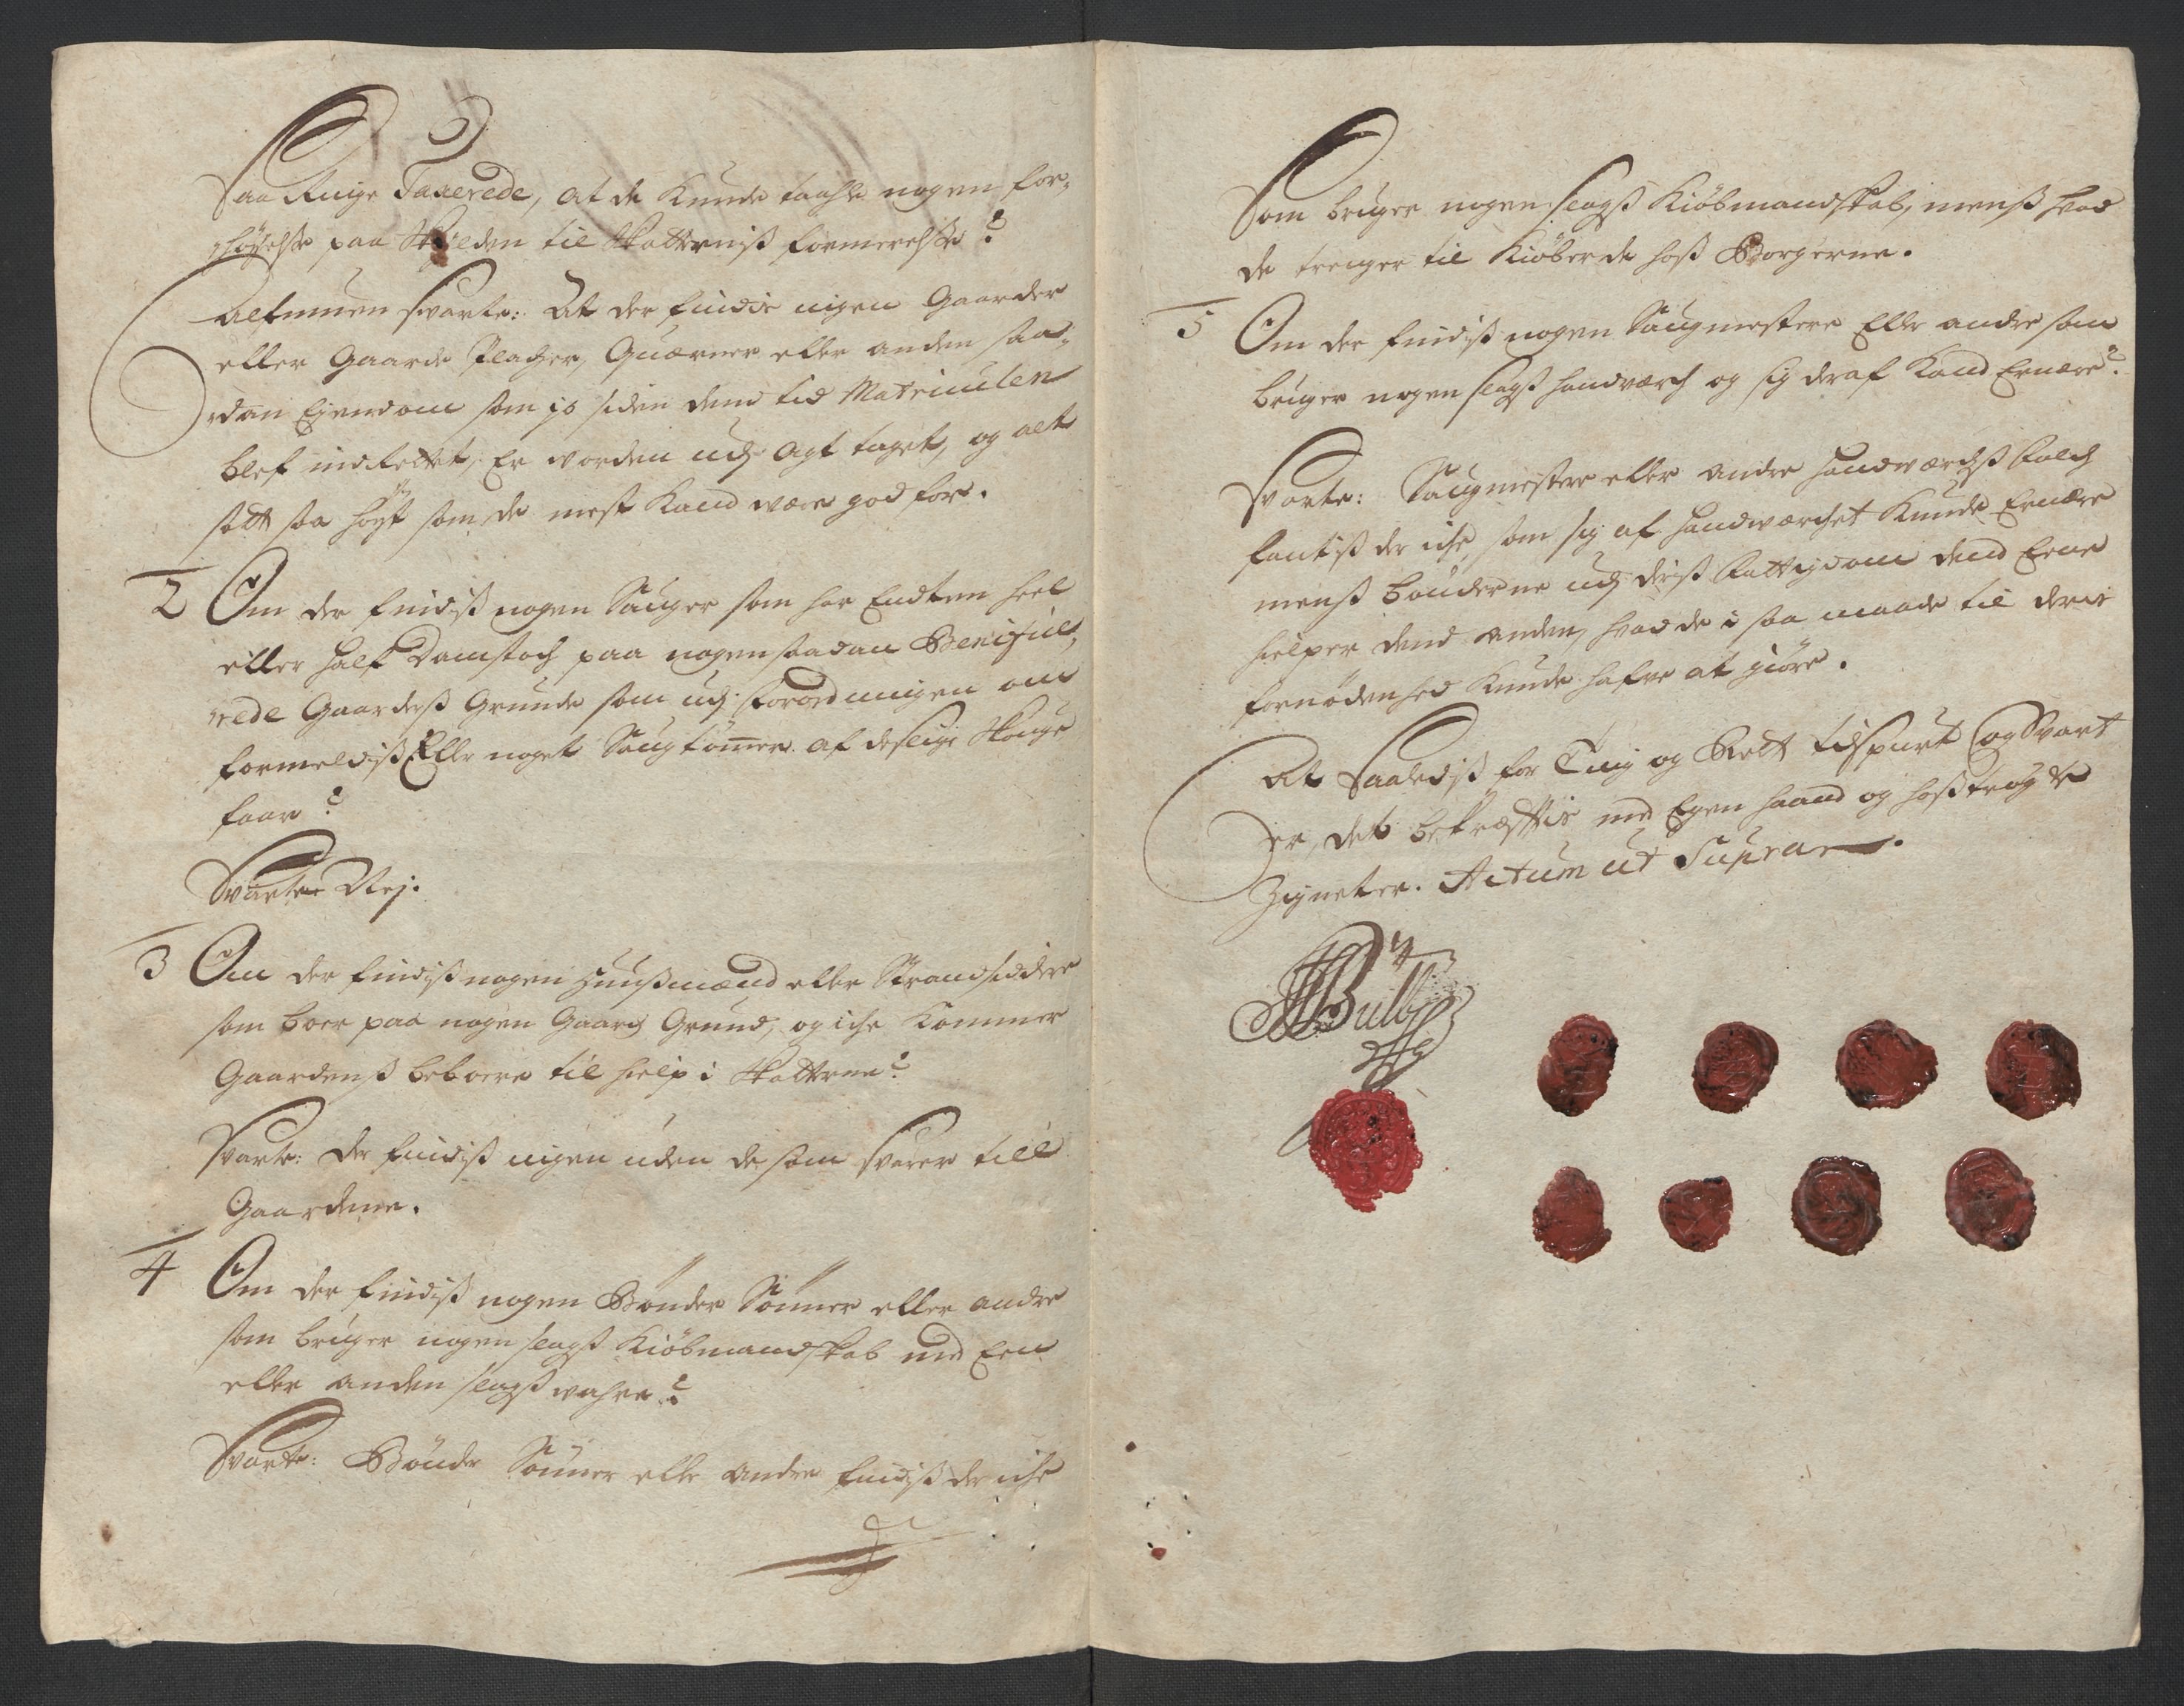 Saa Ringe Taxerede, at de kunde taahle nogen for-
høyelse paa Skylden til Skatternis formerelse?
Allmuen svarte: At der findis ingen Gaarder
eller Gaarde Platzer, Quærner eller anden saa-
dan Ejendom som jo siden dend tid Matriculen
blef indrettet, Er worden udj agt taget, og alt
satt saa høyt som de mest kand være god for.
2 Om der findis nogen Sauger som har Endten heel
eller half Damstock paa nogen saadan Benificie-
rede Gaarders Grunde som udj forordningen om
formeldis Eller noget Saugtømer af deslige Skouge
faar?
Svarte Nej.
3 Om der findis nogen Huusmænd eller Strandsiddere
som boer paa nogen Gaards Grund, og iche kommer
Gaardens beboere til hielp i Skatterne?
Svarte: der findis ingen uden de som svarer till
Gaardene.
4 Om der findis nogen Bønder Sønner eller andre
som bruger nogen slags Kiøbmandskab med Een
eller anden slags wahre?
Svarte: Bønder Sønner eller andre findis der iche
Som bruger nogen slags Kiøbmandskab, mens hvad
de trenger til kiøber de hos Borgerne.
5 Om der findis nogen Saugmestere Eller andre som
bruger nogen slags handværch og sig deraf kand Ernære?
Svarte: Saugmestere eller andre handværchs folch
fantis der iche, som sig af handværchet kunde Ernære
mens bønderne udj deris fattigdom dend Eene
hielper dend anden, hvad de i saa maade til deris
fornødenhed kunde hafve at giøre.
At Saaledis for Ting og Rett tilspurt og Svart
er, det bekræftis med Egen haand og hostrøgte
Zigneter. Actum ut Supra